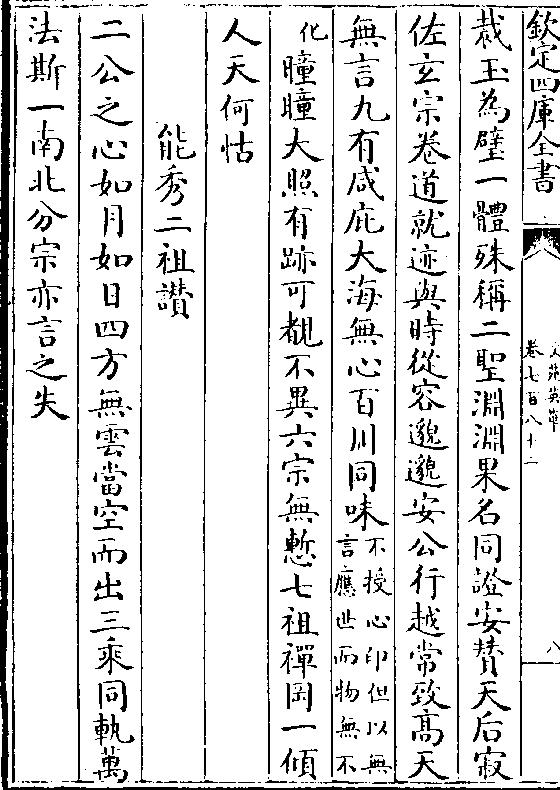 欽定四庫全書
文苑英華
卷七百八十一
八
裁玉為璧一體殊稱二聖淵淵果名同證安賛天后寂
佐玄宗卷道就迹與時從容邈邈安公行越常致髙天
無言九有咸庇大海無心百川同味不授心印但以無
言應世而物無不
化曈曈大照有跡可覩不異六宗無慙七祖禪岡一傾
人天何怙
能秀二祖讃
二公之心如月如日四方無雲當空而出三乗同軌萬
法斯一南北分宗亦言之失